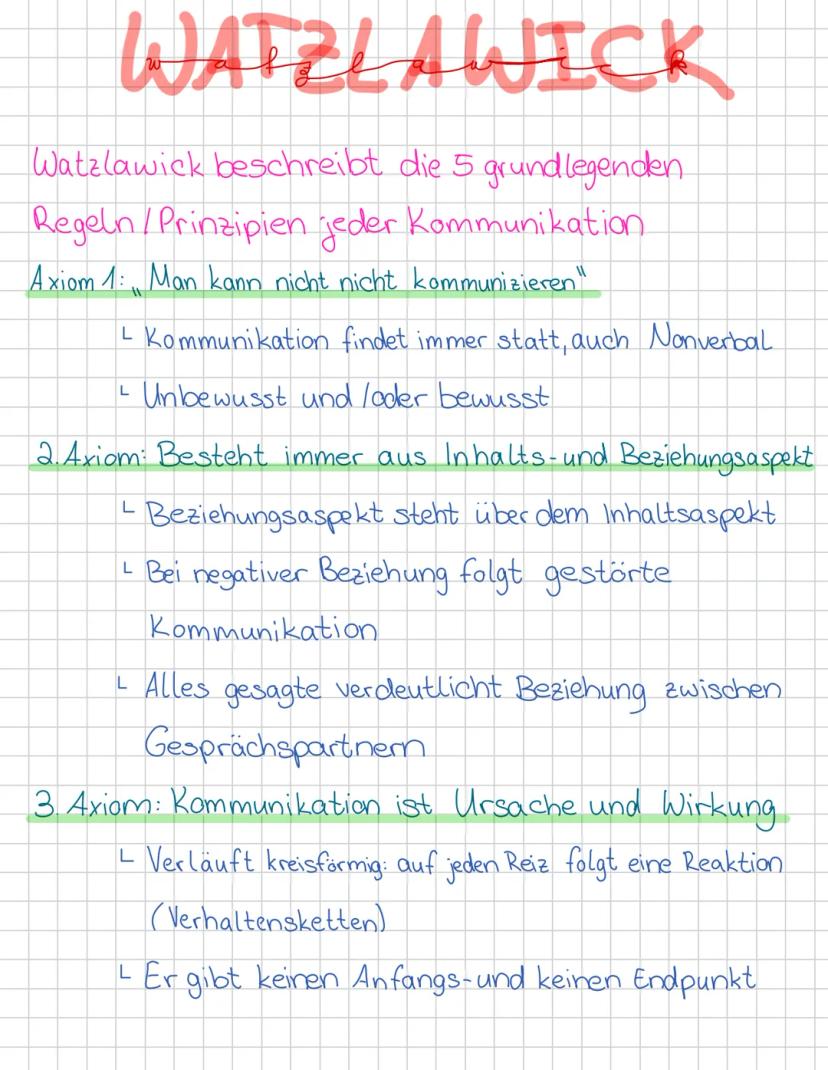 WATZLAWICK
watzlawick
Watzlawick beschreibt die 5 grundlegenden
Regeln/Prinzipien jeder Kommunikation
Axiom 1: „Man kann nicht nicht kommunizieren"
└ Kommunikation findet immer statt, auch Nonverbal
└ Unbewusst und/oder bewusst
2. Axiom: Besteht immer aus Inhalts- und Beziehungsaspekt
└ Beziehungsaspekt steht über dem Inhaltsaspekt
└ Bei negativer Beziehung folgt gestörte
Kommunikation
└ Alles gesagte verdeutlicht Beziehung zwischen
Gesprächspartnern
3. Axiom: Kommunikation ist Ursache und Wirkung
└ Verläuft kreisförmig: auf jeden Reiz folgt eine Reaktion
(Verhaltensketten)
└ Er gibt keinen Anfangs- und keinen Endpunkt